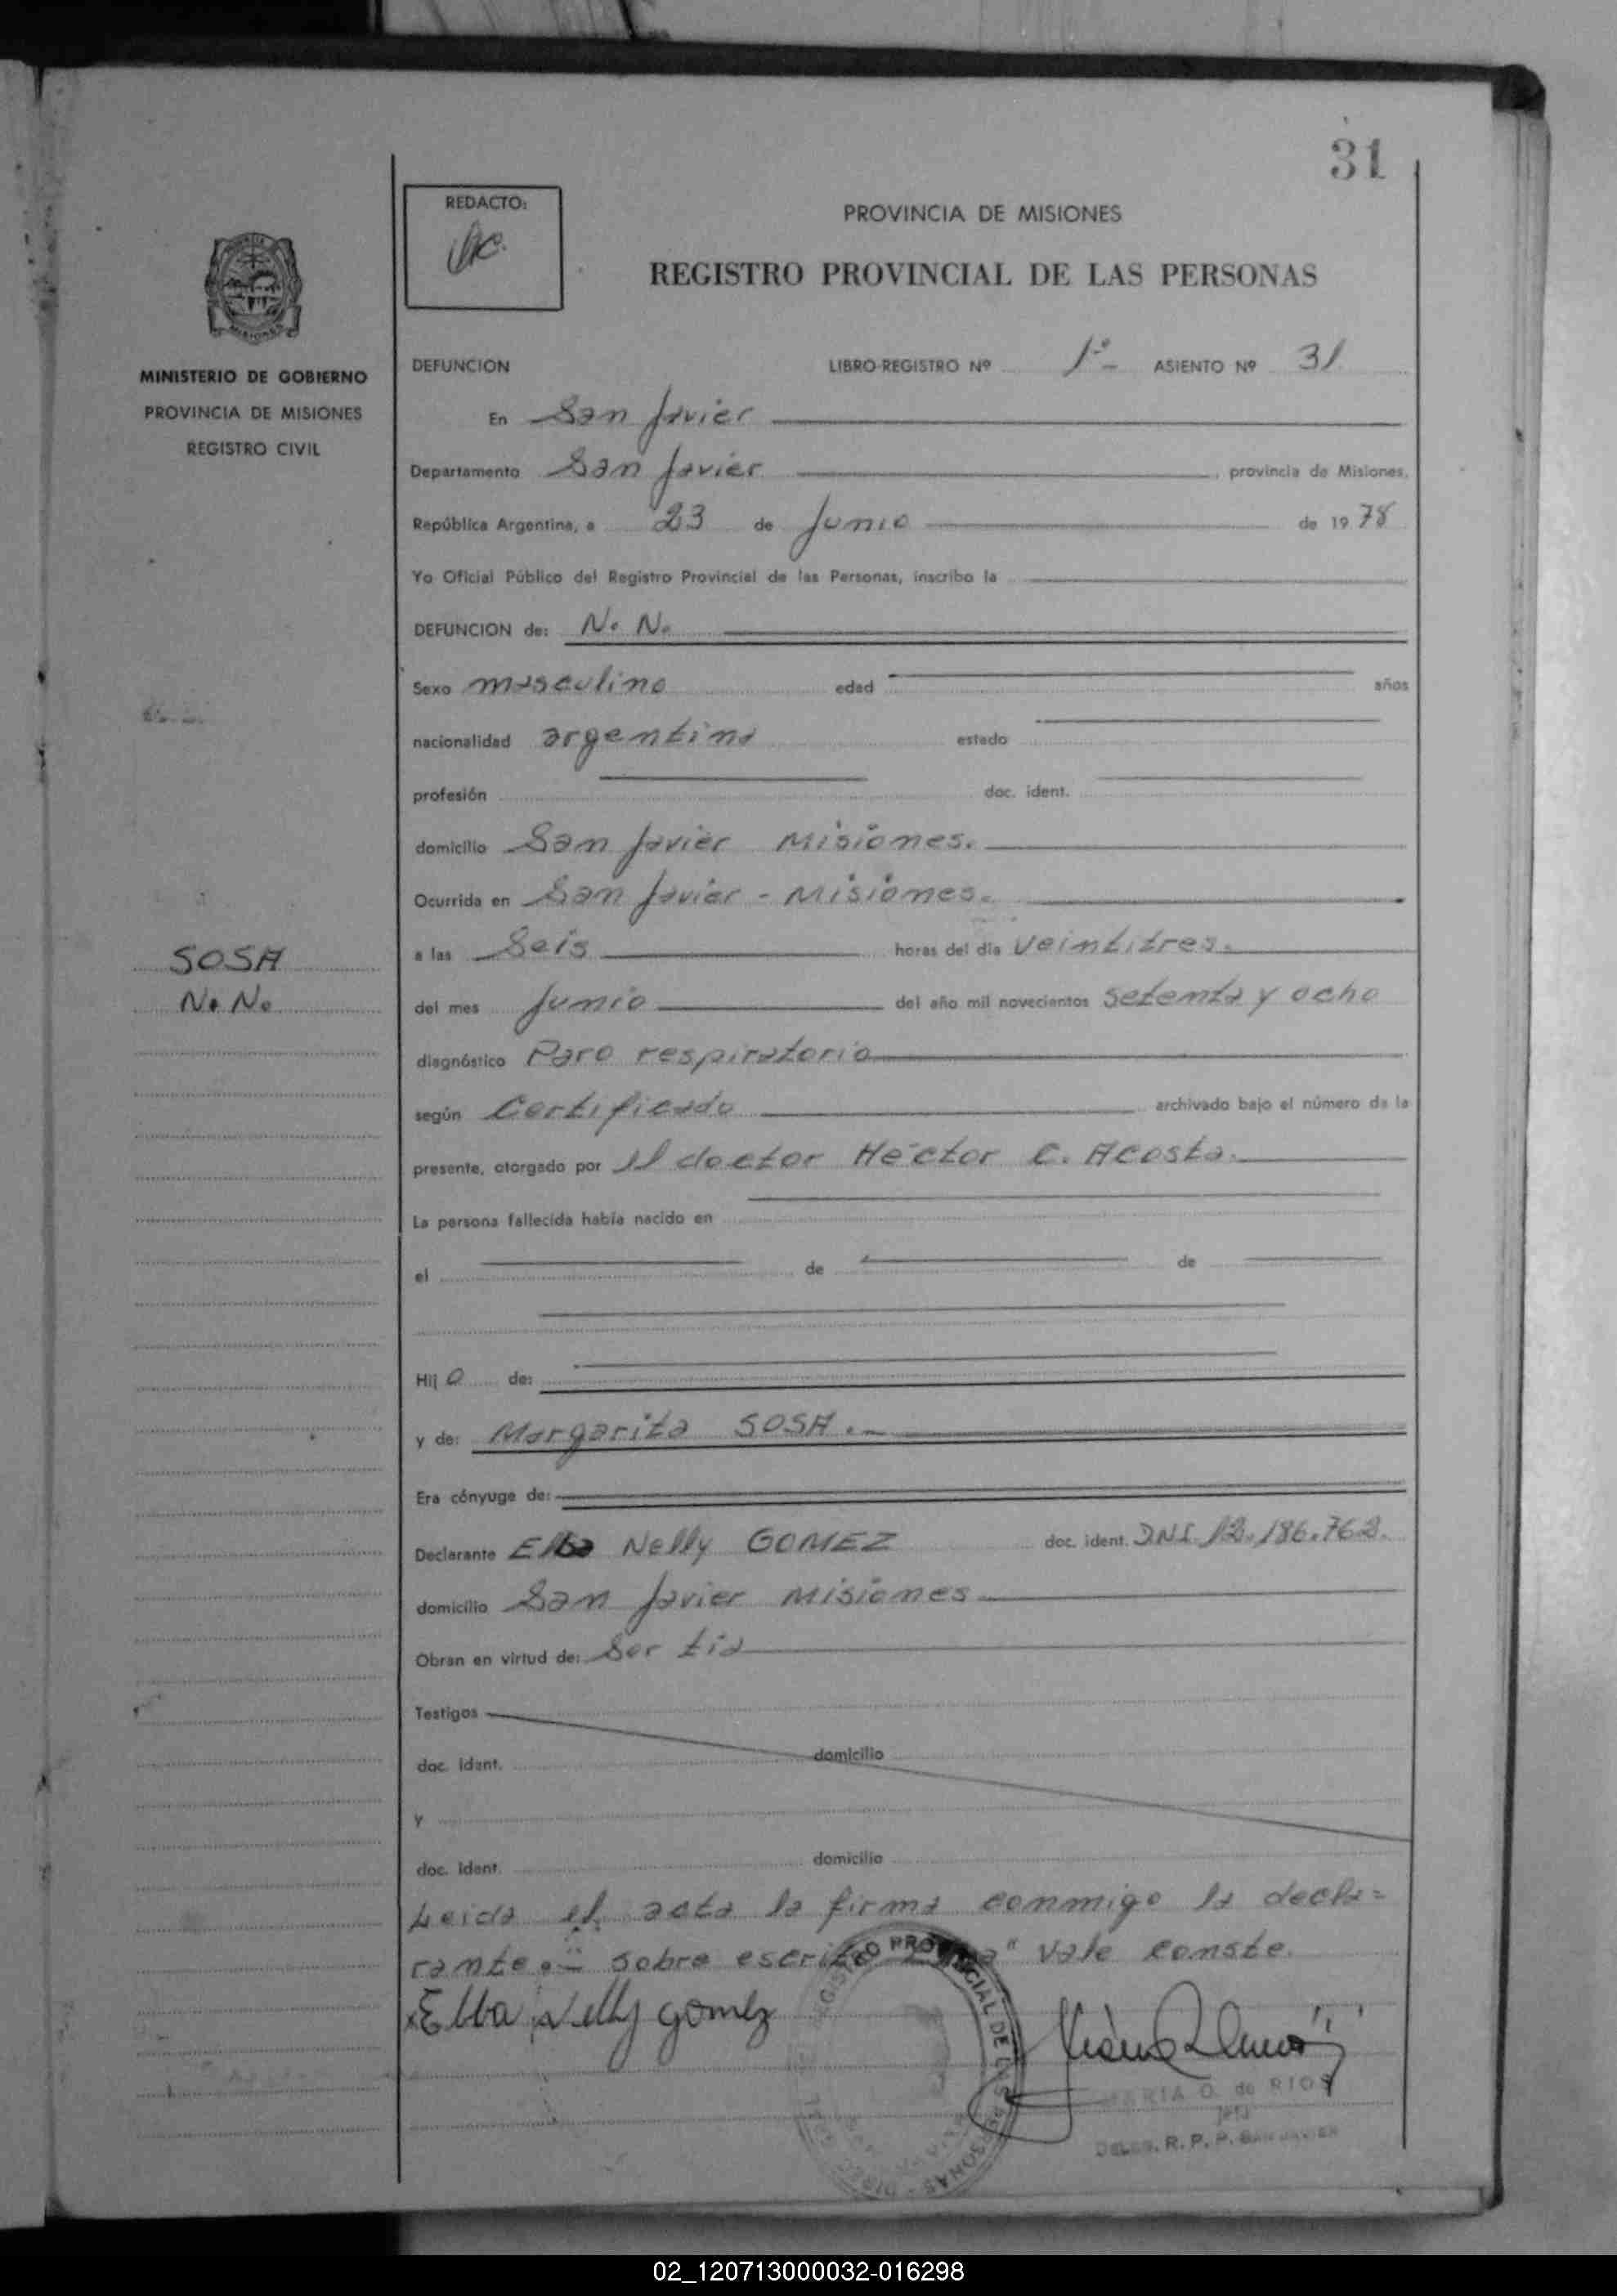 31
REDACTO:
PROVINCIA DE MISIONES
REGISTRO PROVINCIAL DE LAS PERSONAS
MINISTERIO DE GOBIERNO
PROVINCIA DE MISIONES
REGISTRO CIVIL
DEFUNCION LIBRO-REGISTRO Nº 1º- ASIENTO Nº 31
En San Javier
Departamento San Javier, provincia de Misiones,
República Argentina, a 23 de Junio de 19 78
Yo Oficial Público del Registro Provincial de las Personas, inscribo la
DEFUNCION de: N. N.
Sexo masculino edad años
nacionalidad argentina estado
profesión doc. ident.
domicilio San Javier Misiones.
Ocurrida en San Javier - Misiones.
SOSA
N. N.
a las Seis horas del día veintitres.
del mes Junio del año mil novecientos setenta y ocho
diagnóstico Paro respiratorio
según Certificado archivado bajo el número de la
presente, otorgado por el doctor Héctor C. Acosta.
La persona fallecida había nacido en
el de de
Hij o de:
y de: Margarita SOSA.-
Era cónyuge de:
Declarante Elba Nelly GOMEZ doc. ident. DNI. 12.186.762.
domicilio San Javier Misiones
Obran en virtud de: Ser tia
Testigos
doc. ident. domicilio
y
doc. ident. domicilio
Leida el acta la firma conmigo la decla=
rante.- sobre escrito "Elba" vale conste.
Elba Nelly gomez
REGISTRO PROVINCIAL DE LAS PERSONAS
MARIA O. de RIOS
Jefa
DELEG. R. P. P. SAN JAVIER
02_120713000032-016298